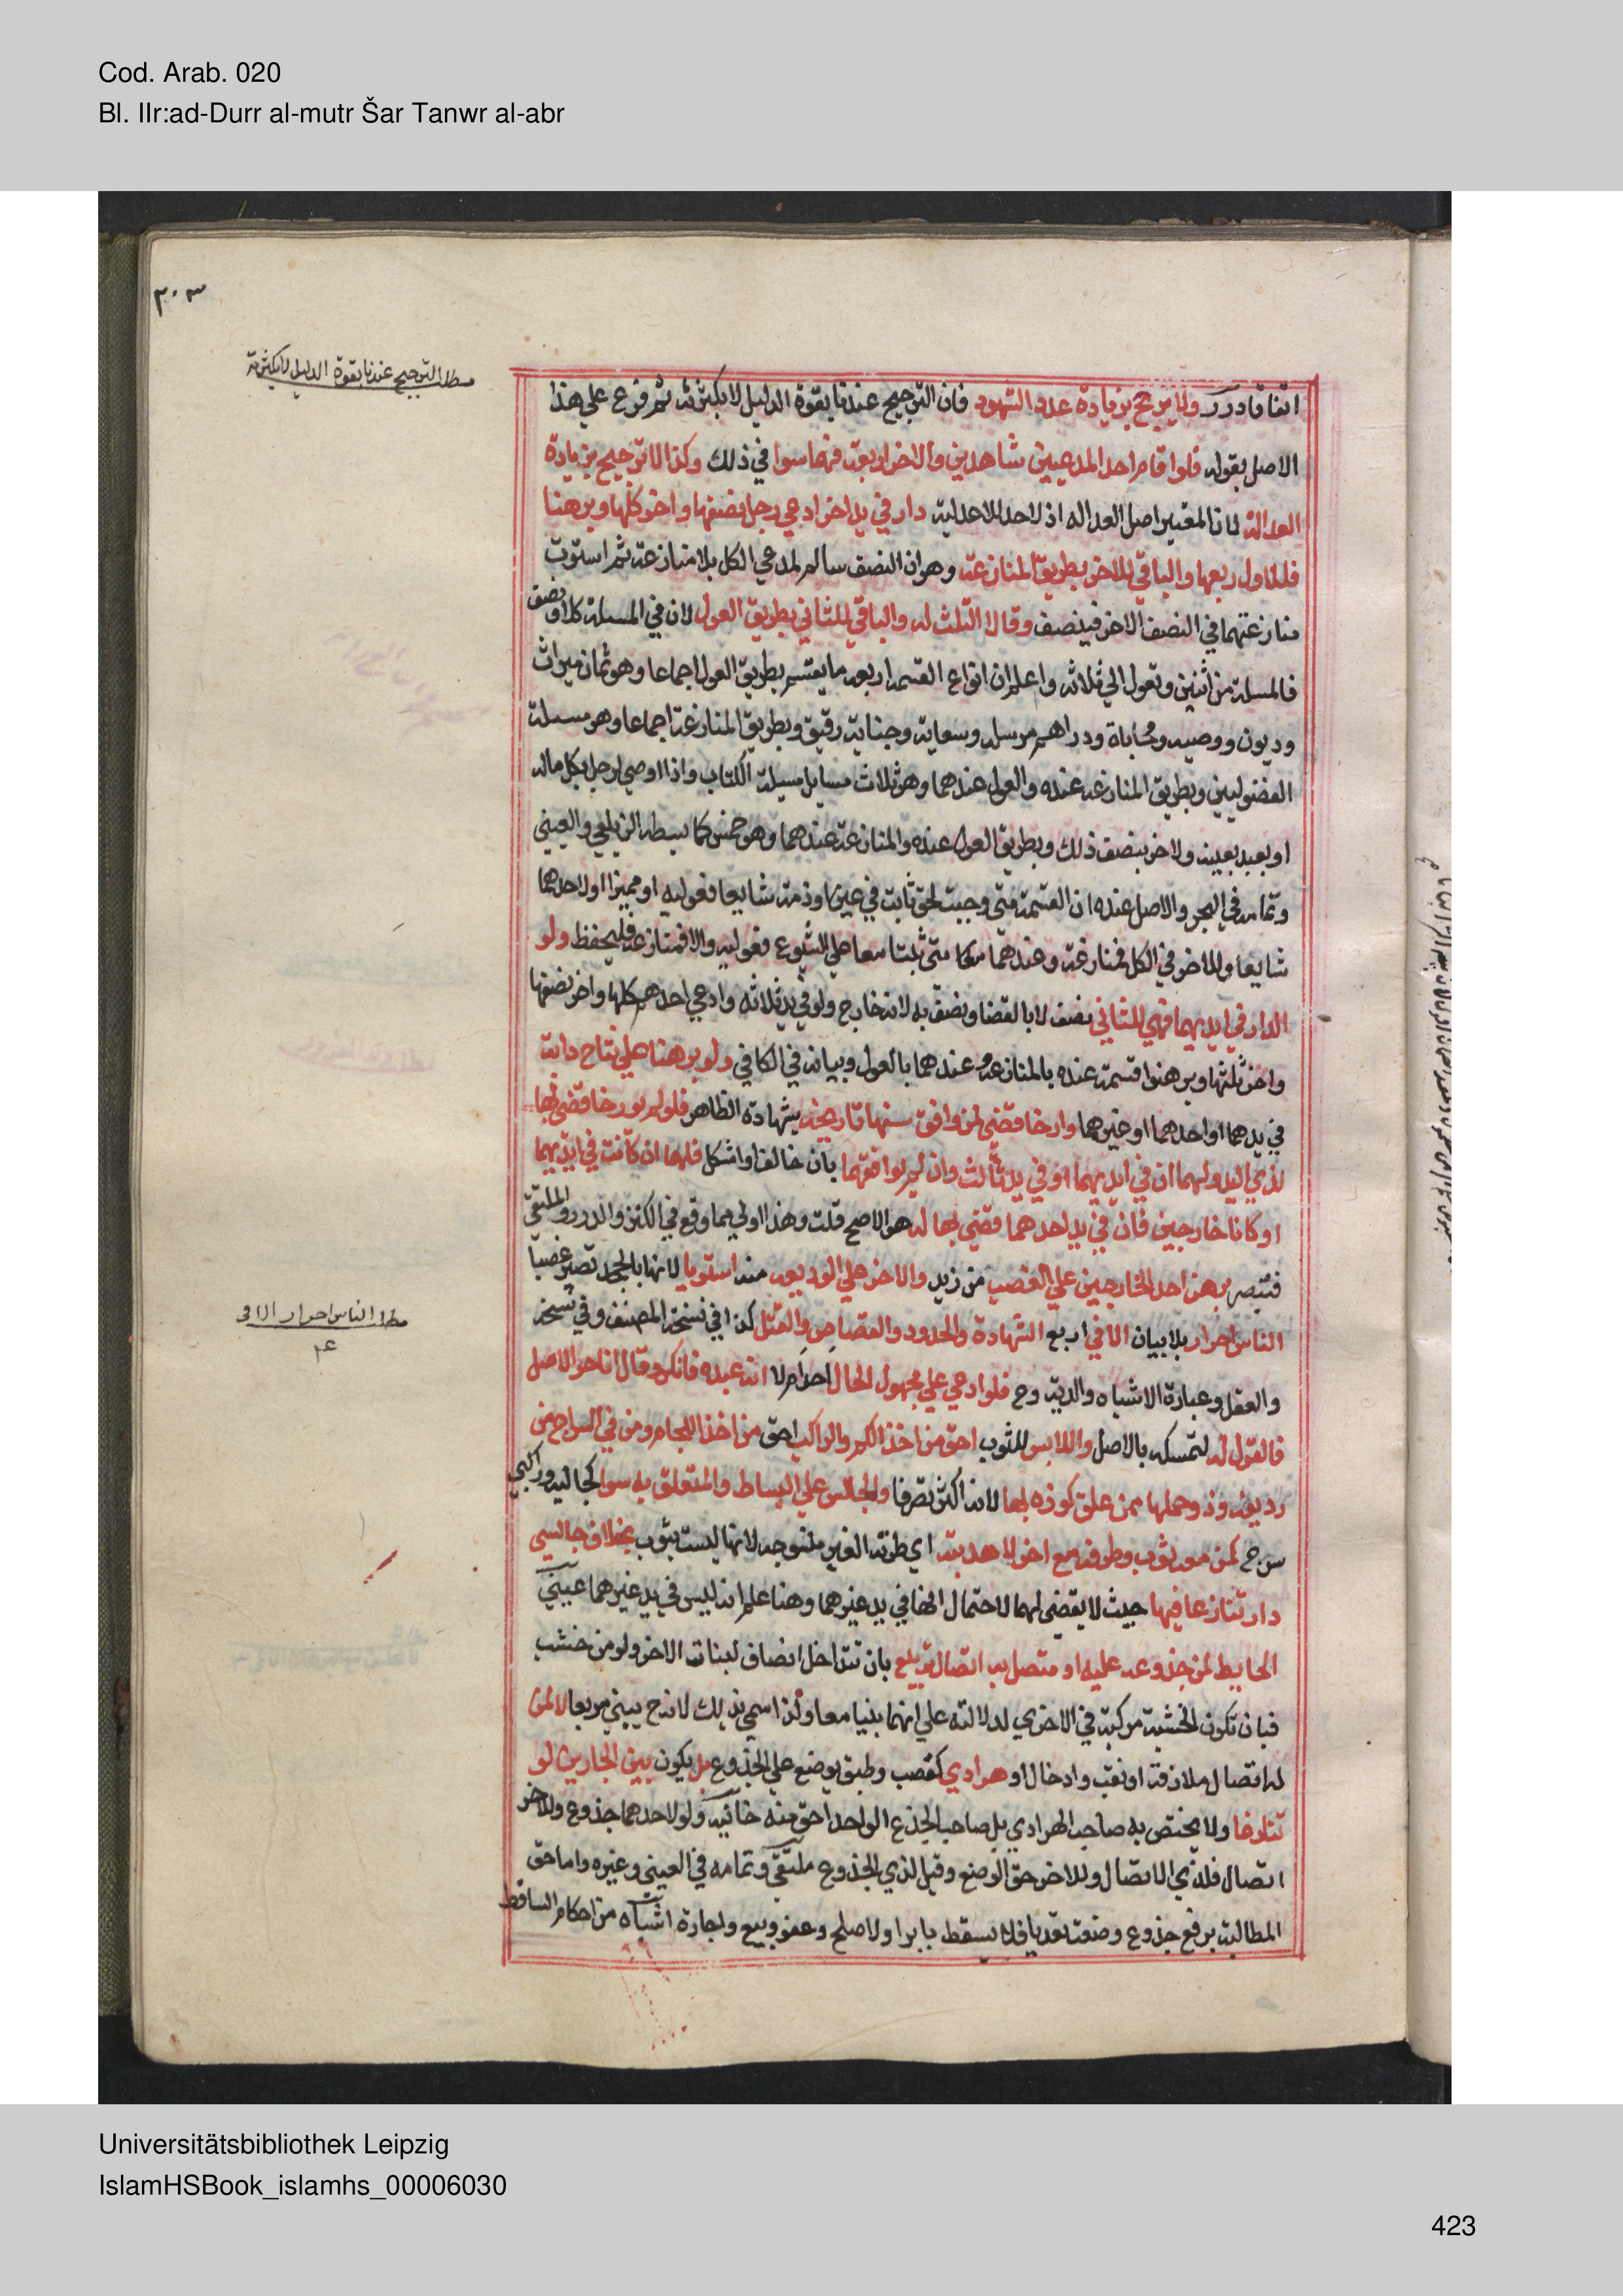 Cod. Arab. 020
Bl. IIr:ad-Durr al-mutr Šar Tanwr al-abr
٣٠٣
مطلب الترجيح عندنا بقوة الدليل لا بكثرته
اتفاقا درر ولا يرجح بزيادة عدد الشهود فان الترجيح عندنا بقوة الدليل لا بكثرته ثم فرع على هذا
الاصل بقوله فلو اقام احد المدعيين شاهدين والاخر اربعة فهما سوا في ذلك وكذا لا ترجيح بزيادة
العدالة لان المعتبر اصل العدالة اذ لا حد للاعدلية دار في يد اخر ادعى رجل نصفها واخر كلها وبرهنا
فللاول ربعها والباقي للاخر بطريق المنازعة وهو ان النصف سالم لمدعي الكل بلا منازعة ثم استوت
منازعتهما في النصف الاخر فينصف وقالا الثلث له والباقي للثاني بطريق العول لان في المسئلة كلا ونصف
فالمسئلة من اثنين وتعول الى ثلاثة واعلم ان انواع القسمة اربعة ما يقسم بطريق العول اجماعا وهو ثمان ميراث
وديون ووصية ومحاباة ودراهم مرسلة وسعاية وجناية رقيق وبطريق المنازعة اجماعا وهو مسئلة
الفضوليين وبطريق المنازعة عنده والعول عندهما وهو ثلاث مسايل مسئلة الكتاب واذا اوصى لرجل بكل ماله
او بعبد بعينه ولاخر بنصف ذلك وبطريق العول عنده والمنازعة عندهما وهو خمس كما بسطه الزيلعي والعيني
وتمامه في البحر والاصل عنده ان القسمة متى وجبت لحق ثابت في عين او ذمة شايعا فعولية او مميزا او لاحدهما
شايعا وللاخر في الكل فمنازعة وعندهما متى ثبتا معا على الشيوع فعولية والا فمنازعة فليحفظ ولو
الدار في ايديهما فهي للثاني نصف لا بالقضا ونصف به لانه خارج ولو في يد ثلاثة وادعى احدهم كلها واخر نصفها
واخر ثلثها وبرهنوا قسمت عنده بالمنازعة وعندهما بالعول وبيانه في الكافي ولو برهنا على نتاج دابة
في يدهما او احدهما او غيرهما وارخا قضي لمن وافق سنها تاريخه بشهادة الظاهر فلو لم يورخا قضي بها
لذي اليد ولهما ان في ايديهما او في يد ثالث وان لم يوافقهما بان خالف او اشكل فلهما ان كانت في ايديهما
او كانا خارجين فان في يد احدهما قضي بها له هو الاصح قلت وهذا اولى مما وقع في الكنز والدرر والملتقى
فتبصر برهن احد الخارجين على الغصب من زيد والاخر على الوديعة منه استويا لانها بالجحد تصير غصبا
الناس احرار بلا بيان الا في اربع الشهادة والحدود والقصاص والقتل كذا في نسخة المصنف وفي نسخة
والعقل وعبارة الاشباه والدية وح فلو ادعي على مجهول الحال احر ام لا انه عبده فانكر وقال انا حر الاصل
فالقول له لتمسكه بالاصل واللابس للثوب احق من اخذ الكم والراكب احق من اخذ اللجام ومن في السرج من
رديفه وذو حملها ممن علق كوزه بها لانه اكثر تصرفا والجالس على البساط والمتعلق به سوا كجالسيه وراكبي
سرج كمن معه ثوب وطرفه مع اخر لا هدبته اي طرته الغير منسوجة لانها ليست بثوب بخلاف جالسي
دار تنازعا فيها حيث لا يقضى لهما لاحتمال انها في يد غيرهما وهنا علم انه ليس في يد غيرهما عيني
الحايط لمن جذوعه عليه او متصل به اتصال تربيع بان تتداخل انصاف لبناته الاخر ولو من خشب
فبان تكون الخشبة مركبة في الاخرى لدلالته على انهما بنيا معا ولذا سمي بذلك لانه ح يبنى مربعا لا لمن
له اتصال ملازقة او نقب وادخال او هرادي كقصب وطبق يوضع على الجذوع بل يكون بين الجارين لو
تنازعا ولا يختص به صاحب الهرادي بل صاحب الجذع الواحد احق منه خانية ولو لاحدهما جذوع وللاخر
اتصال فلذي الاتصال وللاخر حق الوضع وقيل لذي الجذوع ملتقى وتمامه في العيني وغيره واما حق
المطالبة برفع جذوع وضعت تعديا فلا يسقط بابرا ولا صلح وعفو وبيع واجارة اشباه من احكام الساقط
مطلب الناس احرار الا في
Universitätsbibliothek Leipzig
IslamHSBook_islamhs_00006030
423